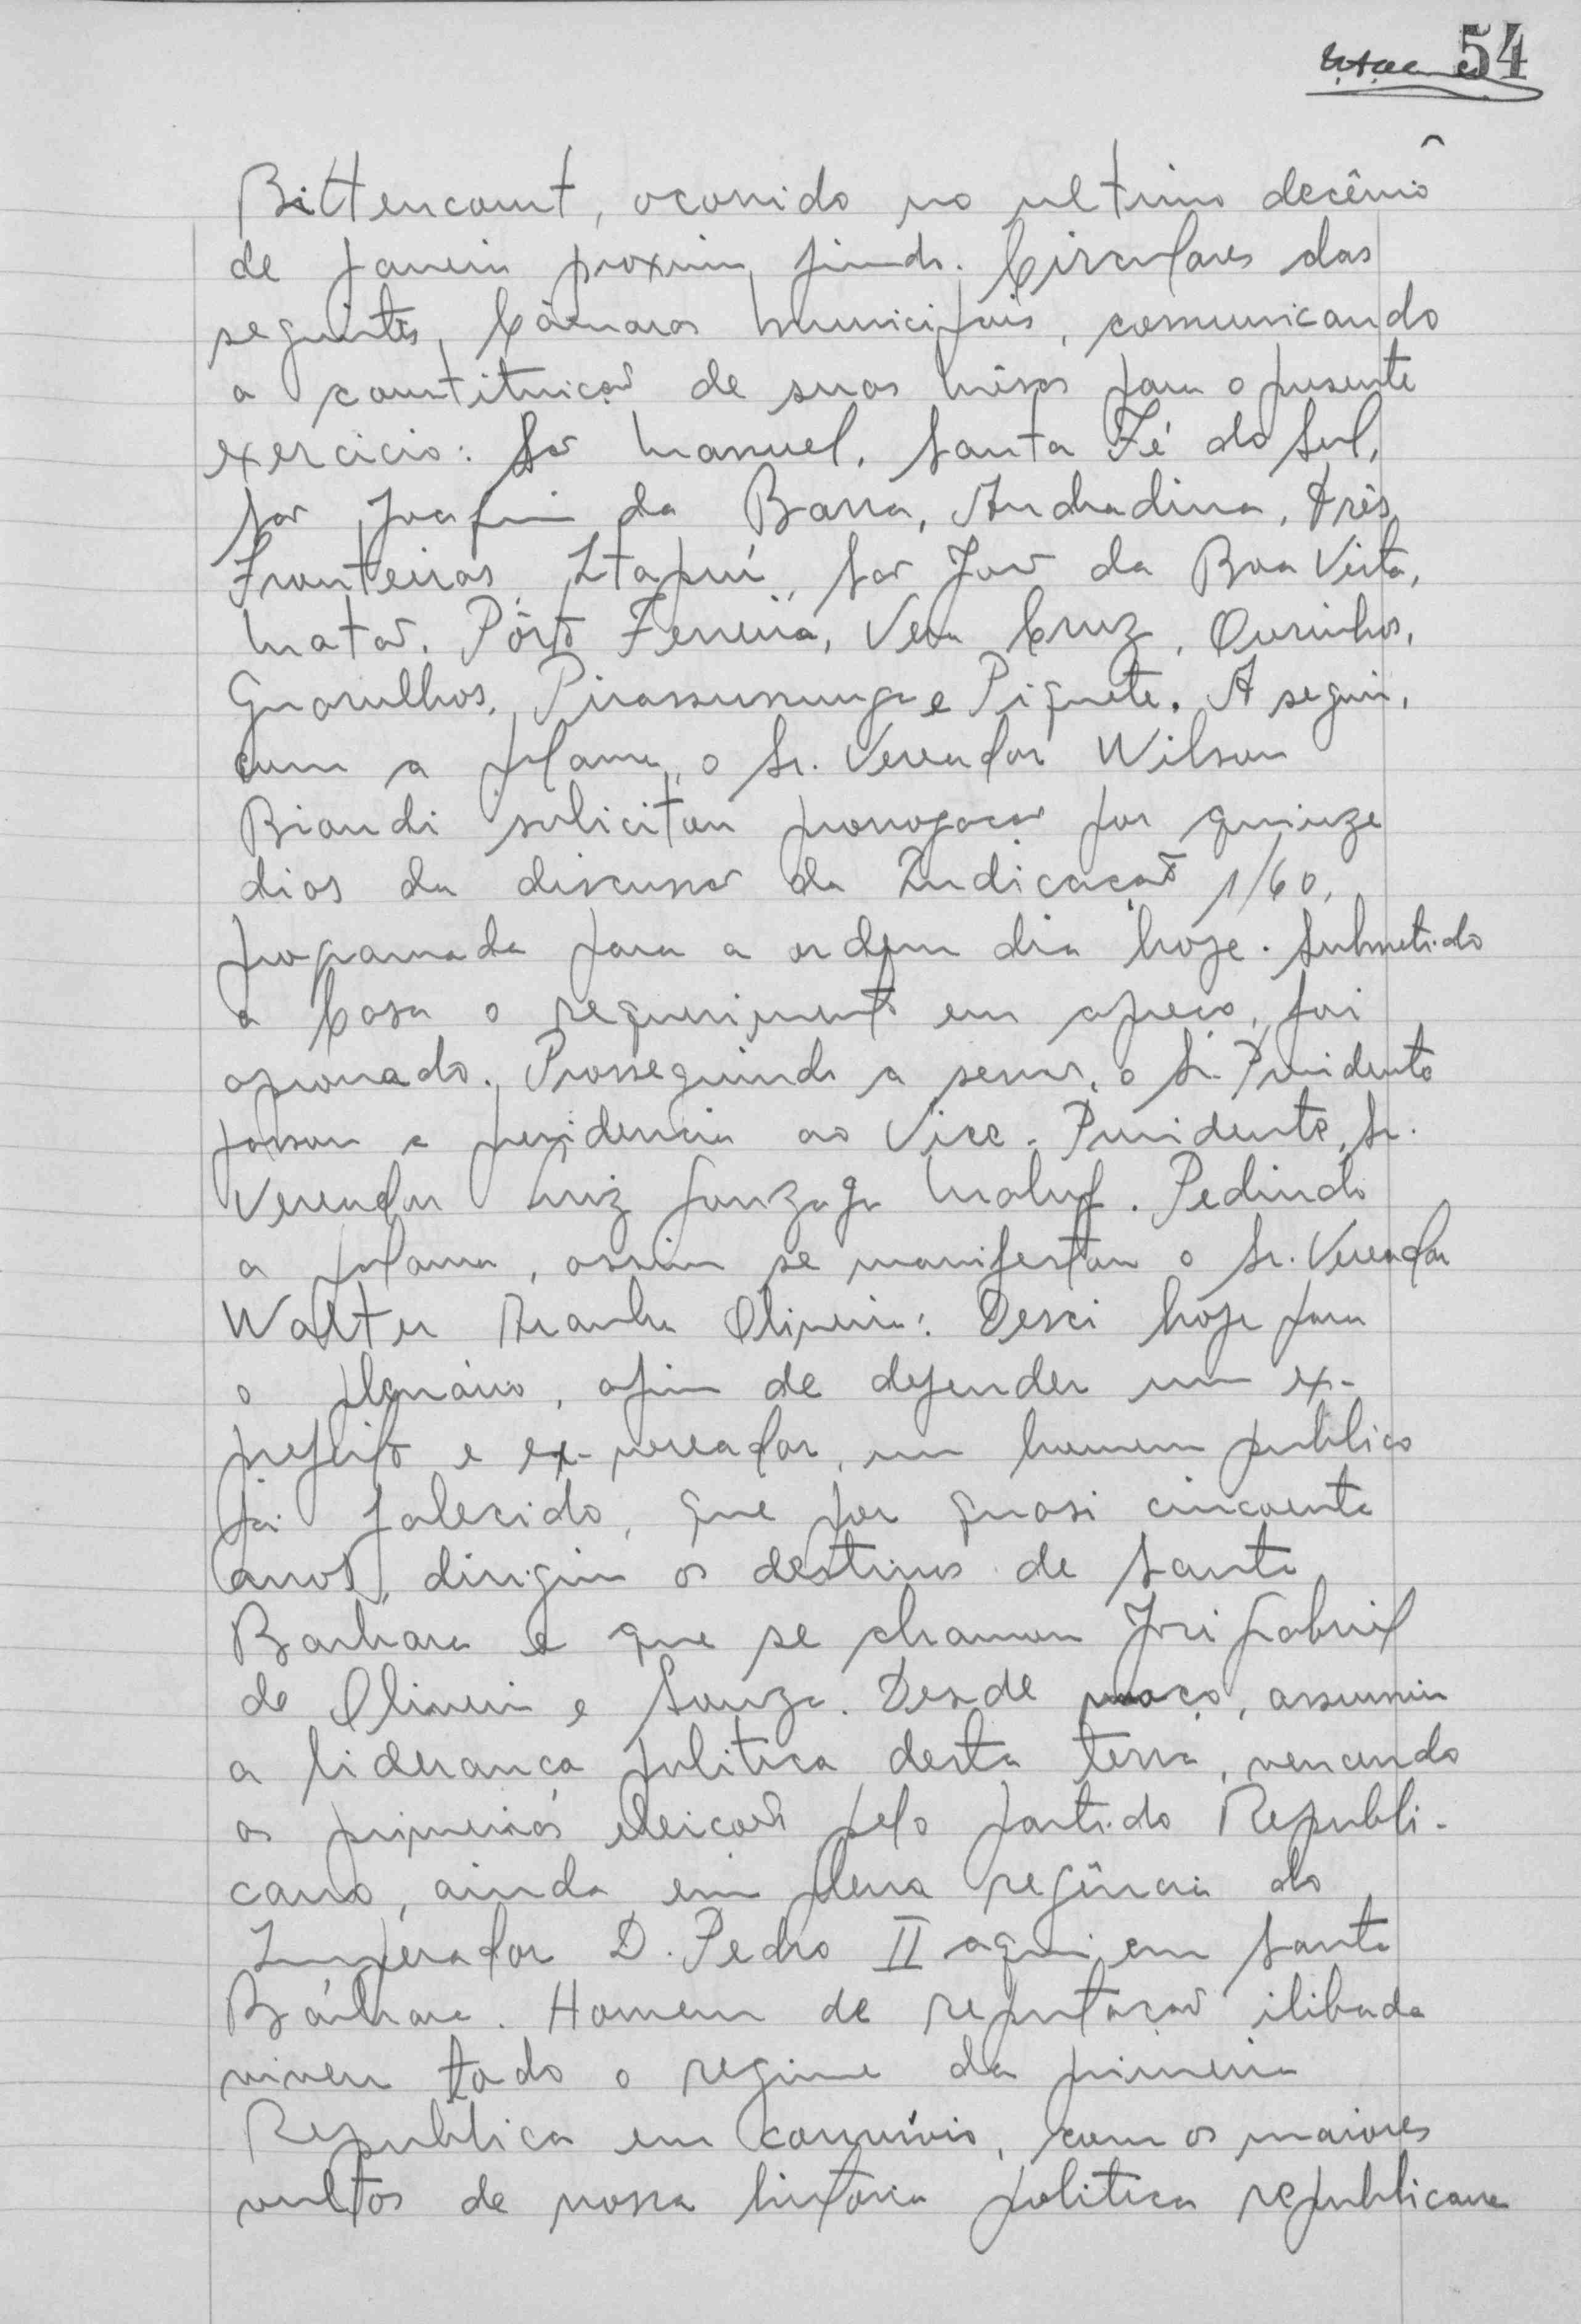 54
Bittencourt, ocorrido no ultimo decênio
de janeiro proximo findo. Circulares das
seguintes Câmaras Municipais, comunicando
a constituição de suas mêsas para o presente
exercicio: São Manuel, Santa Fé do Sul,
São Joaquim da Barra, Andradina, Três
Fronteiras, Itapuí, São João da Boa Vista,
Matão, Pôrto Ferreira, Vera Cruz, Ourinhos,
Guarulhos, Pirassununga e Piquete. A seguir,
com a palavra, o Sr. Vereador Wilson
Biondi solicitou prorrogação por quinze
dias da discussão da Indicação 1/60,
programada para a ordem dia hoje. Submetido
a Casa o requerimento em apreço, foi
aprovado. Prosseguindo a sessão, o Sr. Presidente
passou a presidencia ao Vice-Presidente, Sr.
Vereador Luiz Gonzaga Maluf. Pedindo
a palavra, assim se manifestou o Sr. Vereador
Walter Aranha Oliveira: Desci hoje para
o plenário, afim de defender um ex-
prefeito e ex-vereador, um homem publico
já falecido, que por quasi cincoenta
anos, dirigiu os destinos de Santa
Barbara e que se chamou José Gabriel
de Oliveira e Souza. Desde moço, assumiu
a liderança politica desta terra, vencendo
as primeiras eleições pelo partido Republi-
cano, ainda em plena regência do
Imperador D. Pedro II aqui em Santa
Bárbara. Homem de reputação ilibada
viveu todo o regime da primeira
Republica em convivio, com os maiores
vultos de nossa historia politica republicana